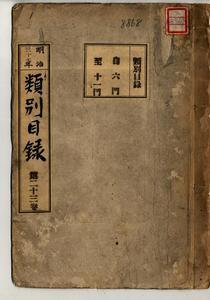 8868
類別目録
自六門
至十一門
明治
三十年
類別目録
第二十三巻